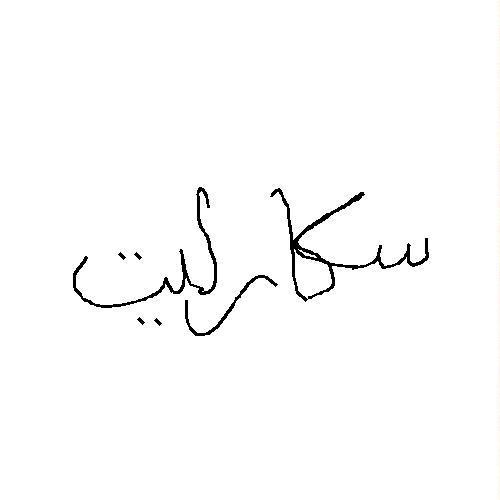 سكارليت